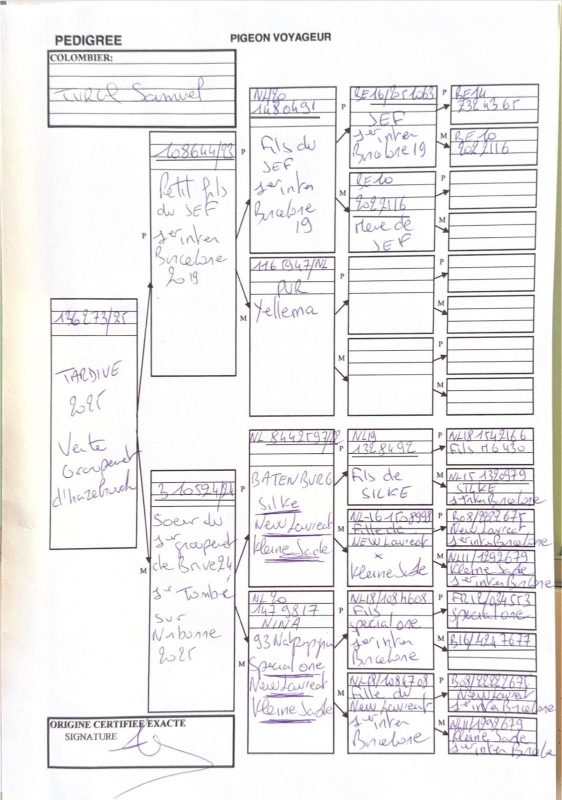 PEDIGREE
PIGEON VOYAGEUR
COLOMBIER:
TURCQ Samuel
136273/25
TARDIVE
2025
Vente
Groupement
d'hazebrouck
P
108644/23
Petit fils
du JEF
1er inter
Barcelone
2019
M
3 10524/24
Soeur du
1er groupement
de Brive 24
1er Tombé
sur
Narbonne
2025
P
NL/20
1480491
Fils du
JEF
1er inter
Barcelone
19
M
1165947/NL
PUR
Yellema
P
NL 8442597/22
BATENBURG
Silke
New Laureat
Kleine Sade
M
NL20
1479817
NINA
Special one
New Laureat
Kleine Sade
P
BE16/2051063
JEF
1er inter
Barcelone 19
M
BE10
2022116
Mere de
JEF
P
M
P
NL19
1328492
Fils de
SILKE
M
NL-16 1508998
Fille de
NEW Laureat
x
Kleine Sade
P
NL18/1084608
Fils
special one
1er inter
Barcelone
M
NL18/1084708
Fille du
New Laureat
1er inter
Barcelone
P
BE14
2324365
M
BE10
2022116
P
M
P
M
P
M
P
NL18 1542166
Fils M6430
M
NL15 1320979
SILKE
1er inter Barcelone
P
B08/2222675
New Laureat
1er inter Barcelone
M
NL11/1292679
Kleine Sade
1er inter Barcelone
P
special one
M
B16/4247677
P
B08/2222675
New Laureat
1er inter Barcelone
M
NL11/1292679
Kleine Sade
1er inter Barcelone
ORIGINE CERTIFIEE EXACTE
SIGNATURE